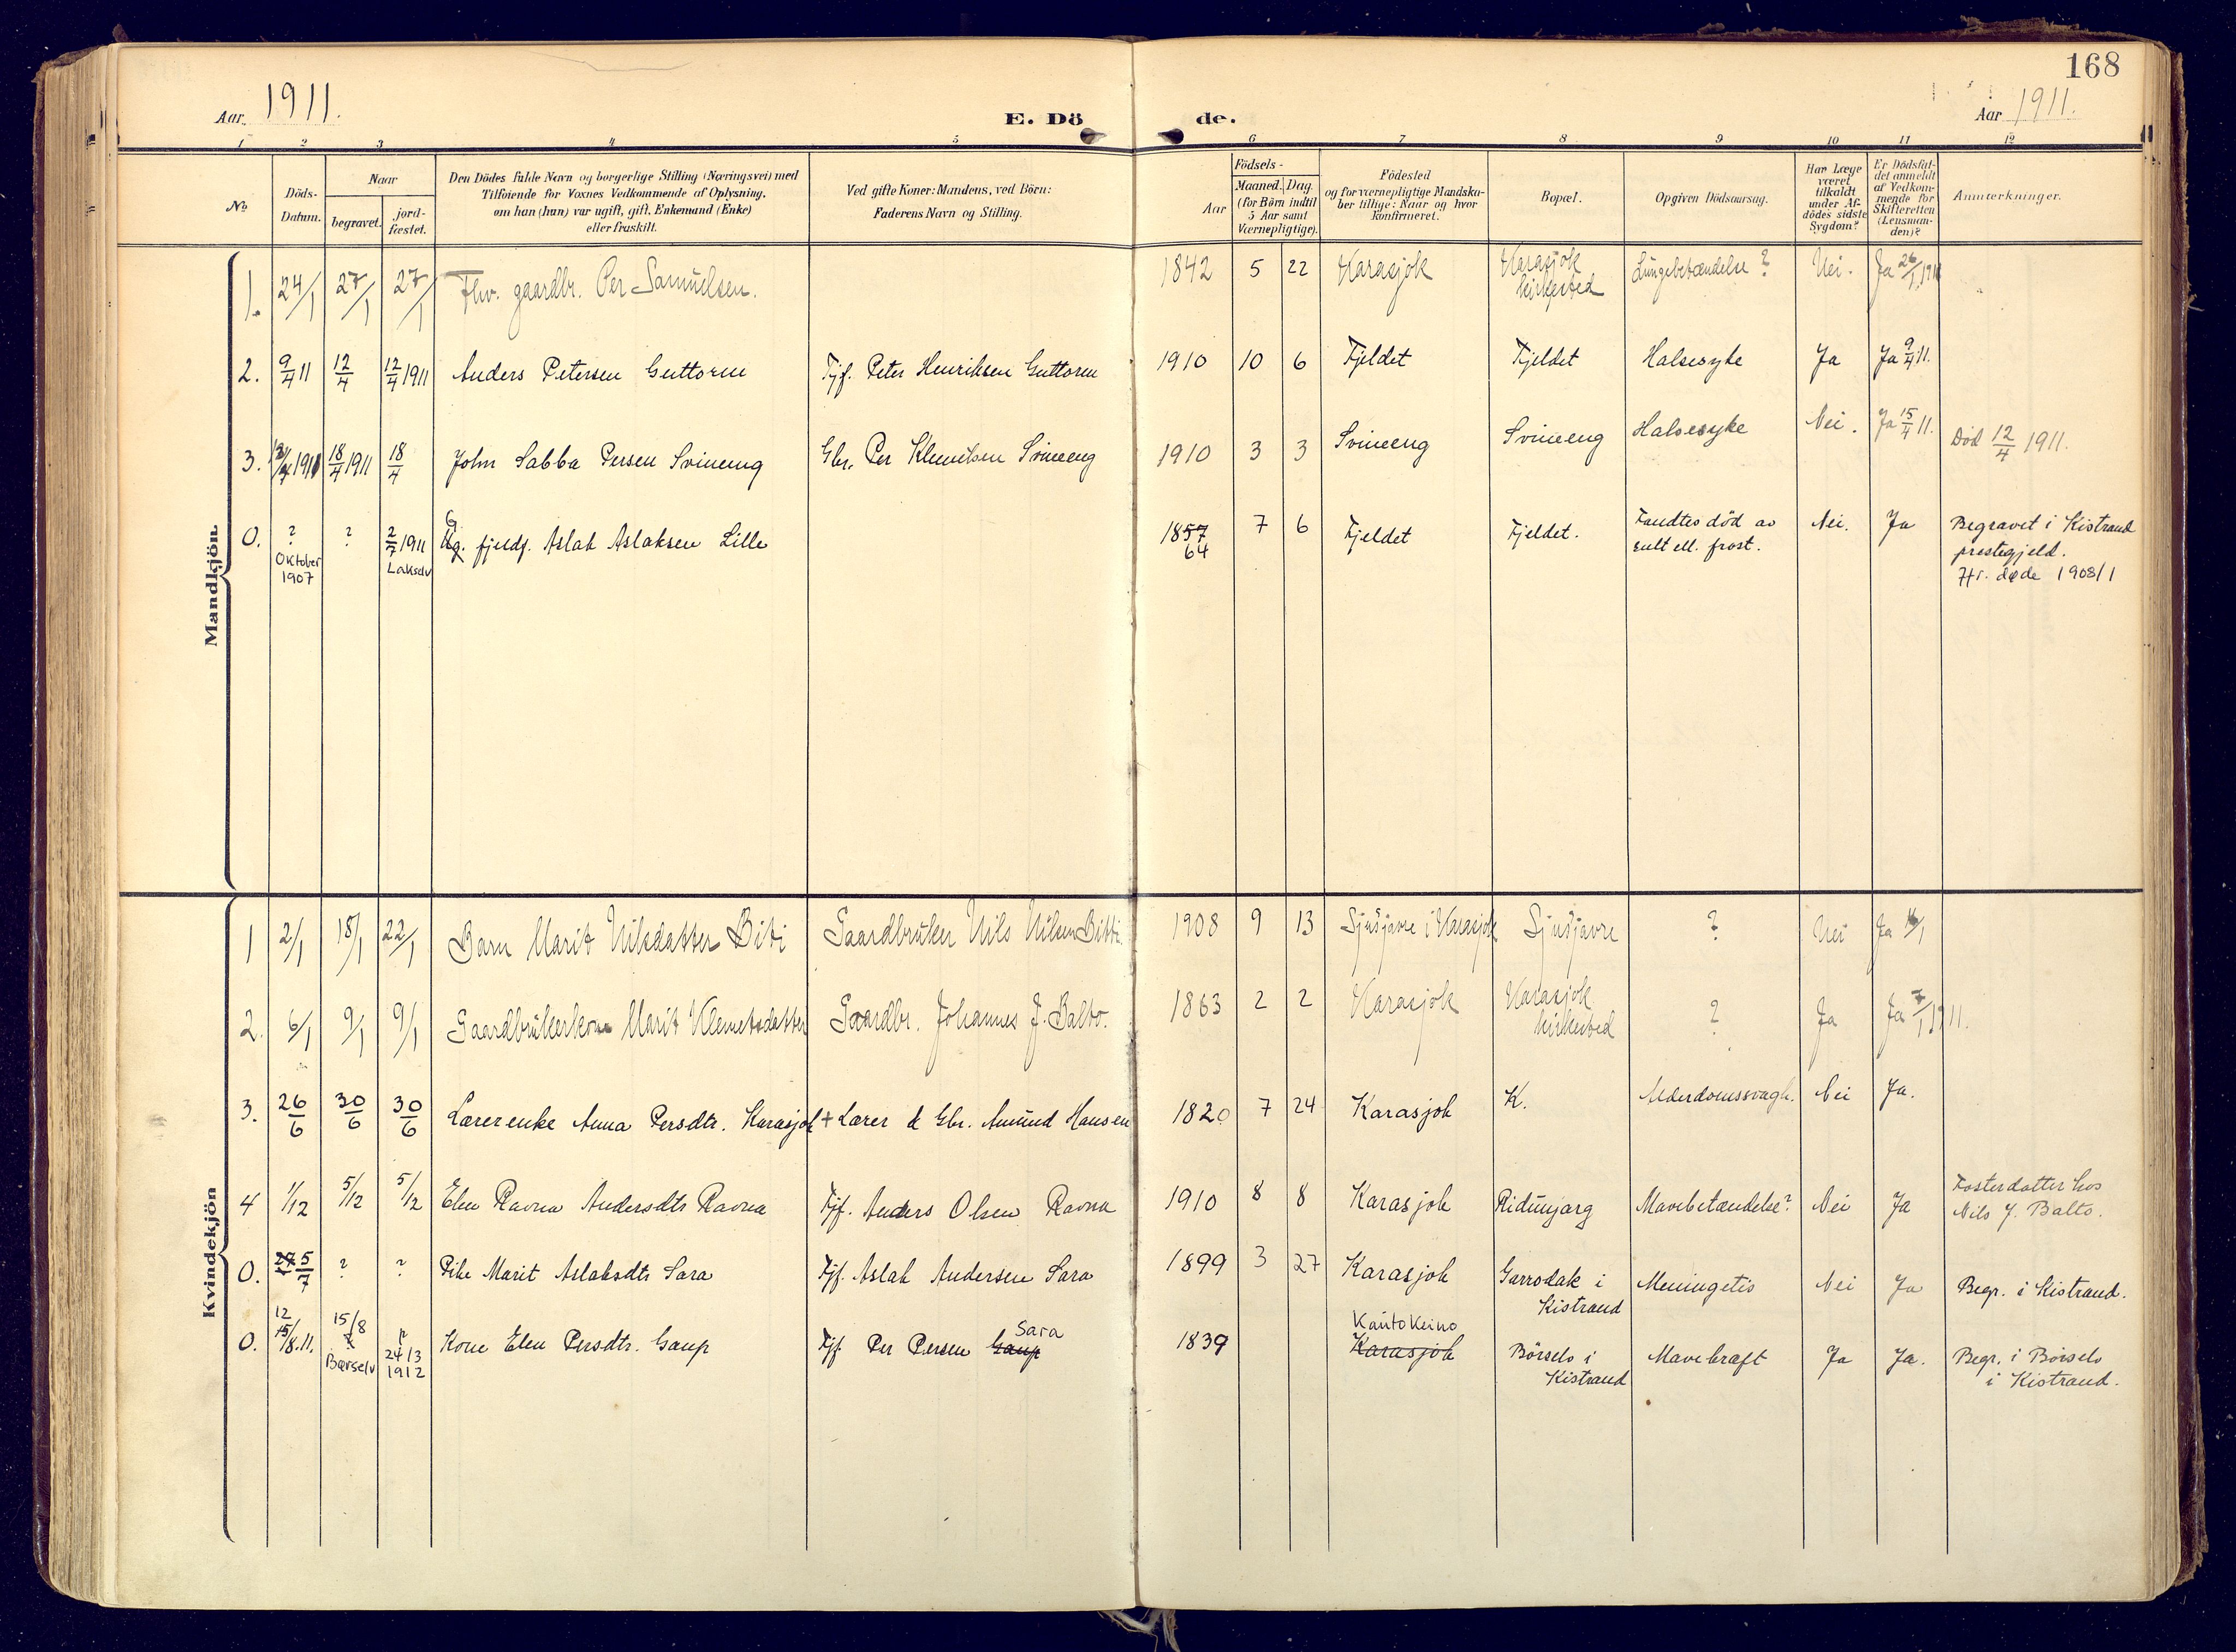 168
Aar. 1911.
E. Dö de.
Aar 1911.
1 2 3 4 5 6 7 8 9 10 11 12
No
Döds-
Datum.
Naar
begravet.
jord-
fæstet.
Den Dödes fulde Navn og borgerlige Stilling (Næringsvei) med
Tilföiende for Voxnes Vedkommende af Oplysning,
om han (hun) var ugift, gift, Enkemand (Enke)
eller fraskilt.
Ved gifte Koner: Mandens, ved Börn:
Faderens Navn og Stilling.
Födsels-
Aar
Maaned. Dag.
(for Börn indtil
5 Aar samt
Værnepligtige).
Födested
og for værnepligtige Mandska-
ber tillige: Naar og hvor
konfirmeret.
Bopæl.
Opgiven Dödsaarsag.
Har Læge
været
tilkaldt
under Af-
dödes sidste
Sygdom?
Er Dödsfal-
det anmeldt
af Vedkom-
mende for
Skifteretten
(Lensman-
den)?
Anmærkninger.
Mandkjön.
1. 24/1 27/1 27/1 Fhv. gaardbr. Per Samuelsen. 1842 5 22 Karasjok Karasjok kirkested Lungebetændelse? Nei. Ja 26/1 1911
2. 9/4 11 12/4 12/4 1911 Anders Petersen Guttorm Fjf. Peter Henriksen Guttorm 1910 10 6 Fjeldet Fjeldet Halsesyke Ja Ja 9/4 11.
3. 12/4 1911 18/4 1911 18/4 John Sabba Persen Svineng Gbr. Per Klemetsen Svineng 1910 3 3 Svineng Svineng Halsesyke Nei. Ja 15/4 11. Död 12/4 1911.
0. ? Oktober 1907 ? 2/7 1911 Lakselv Ug. fjeldf. Aslak Aslaksen Lille 1857 64 7 6 Fjeldet Fjeldet. Fandtes död av sult ell. frost. Nei. Ja Begravet i Kistrand
prestegjeld.
Hfr. døde 1908/1
Kvindekjön
1 2/1 18/1 22/1 Barn Marit Nilsdatter Biti Gaardbruker Nils Nilsen Bitti. 1908 9 13 Sjusjavre i Karasjok Sjusjavre ? Nei Ja
2. 6/1 9/1 9/1 Gaardbrukerkone Marit Klemetsdatter Gaardbr. Johannes J. Balto. 1863 2 2 Karasjok Karasjok kirkested ? Ja Ja 7/1 1911.
3. 26/6 30/6 30/6 Lærerenke Anna Persdtr. Karasjok + Lærer & Gbr. Amund Hansen 1820 7 24 Karasjok K. Alderdomssvagh. Nei Ja.
4 1/12 5/12 5/12 Elen Ravna Andersdtr Ravna Fjf. Anders Olsen Ravna 1910 8 8 Karasjok Ridunjarg Mavebetændelse? Nei Ja Fosterdatter hos
Nils J. Balto.
0. 27 5/7 ? ? Pike Marit Aslaksdtr Sara Fjf. Aslak Andersen Sara 1899 3 27 Karasjok Garrodak i Kistrand Meningetis Nei Ja Begr. i Kistrand.
0. 12 15/8.11. 15/8 ? Børselv 24/3 1912 Kone Elen Persdtr. Gaup Fjf. Per Persen Gaup Sara 1839 Kautokeino Karasjok Börselv i Kistrand Mavekræft Ja Ja. Begr. i Börselv
i Kistrand.